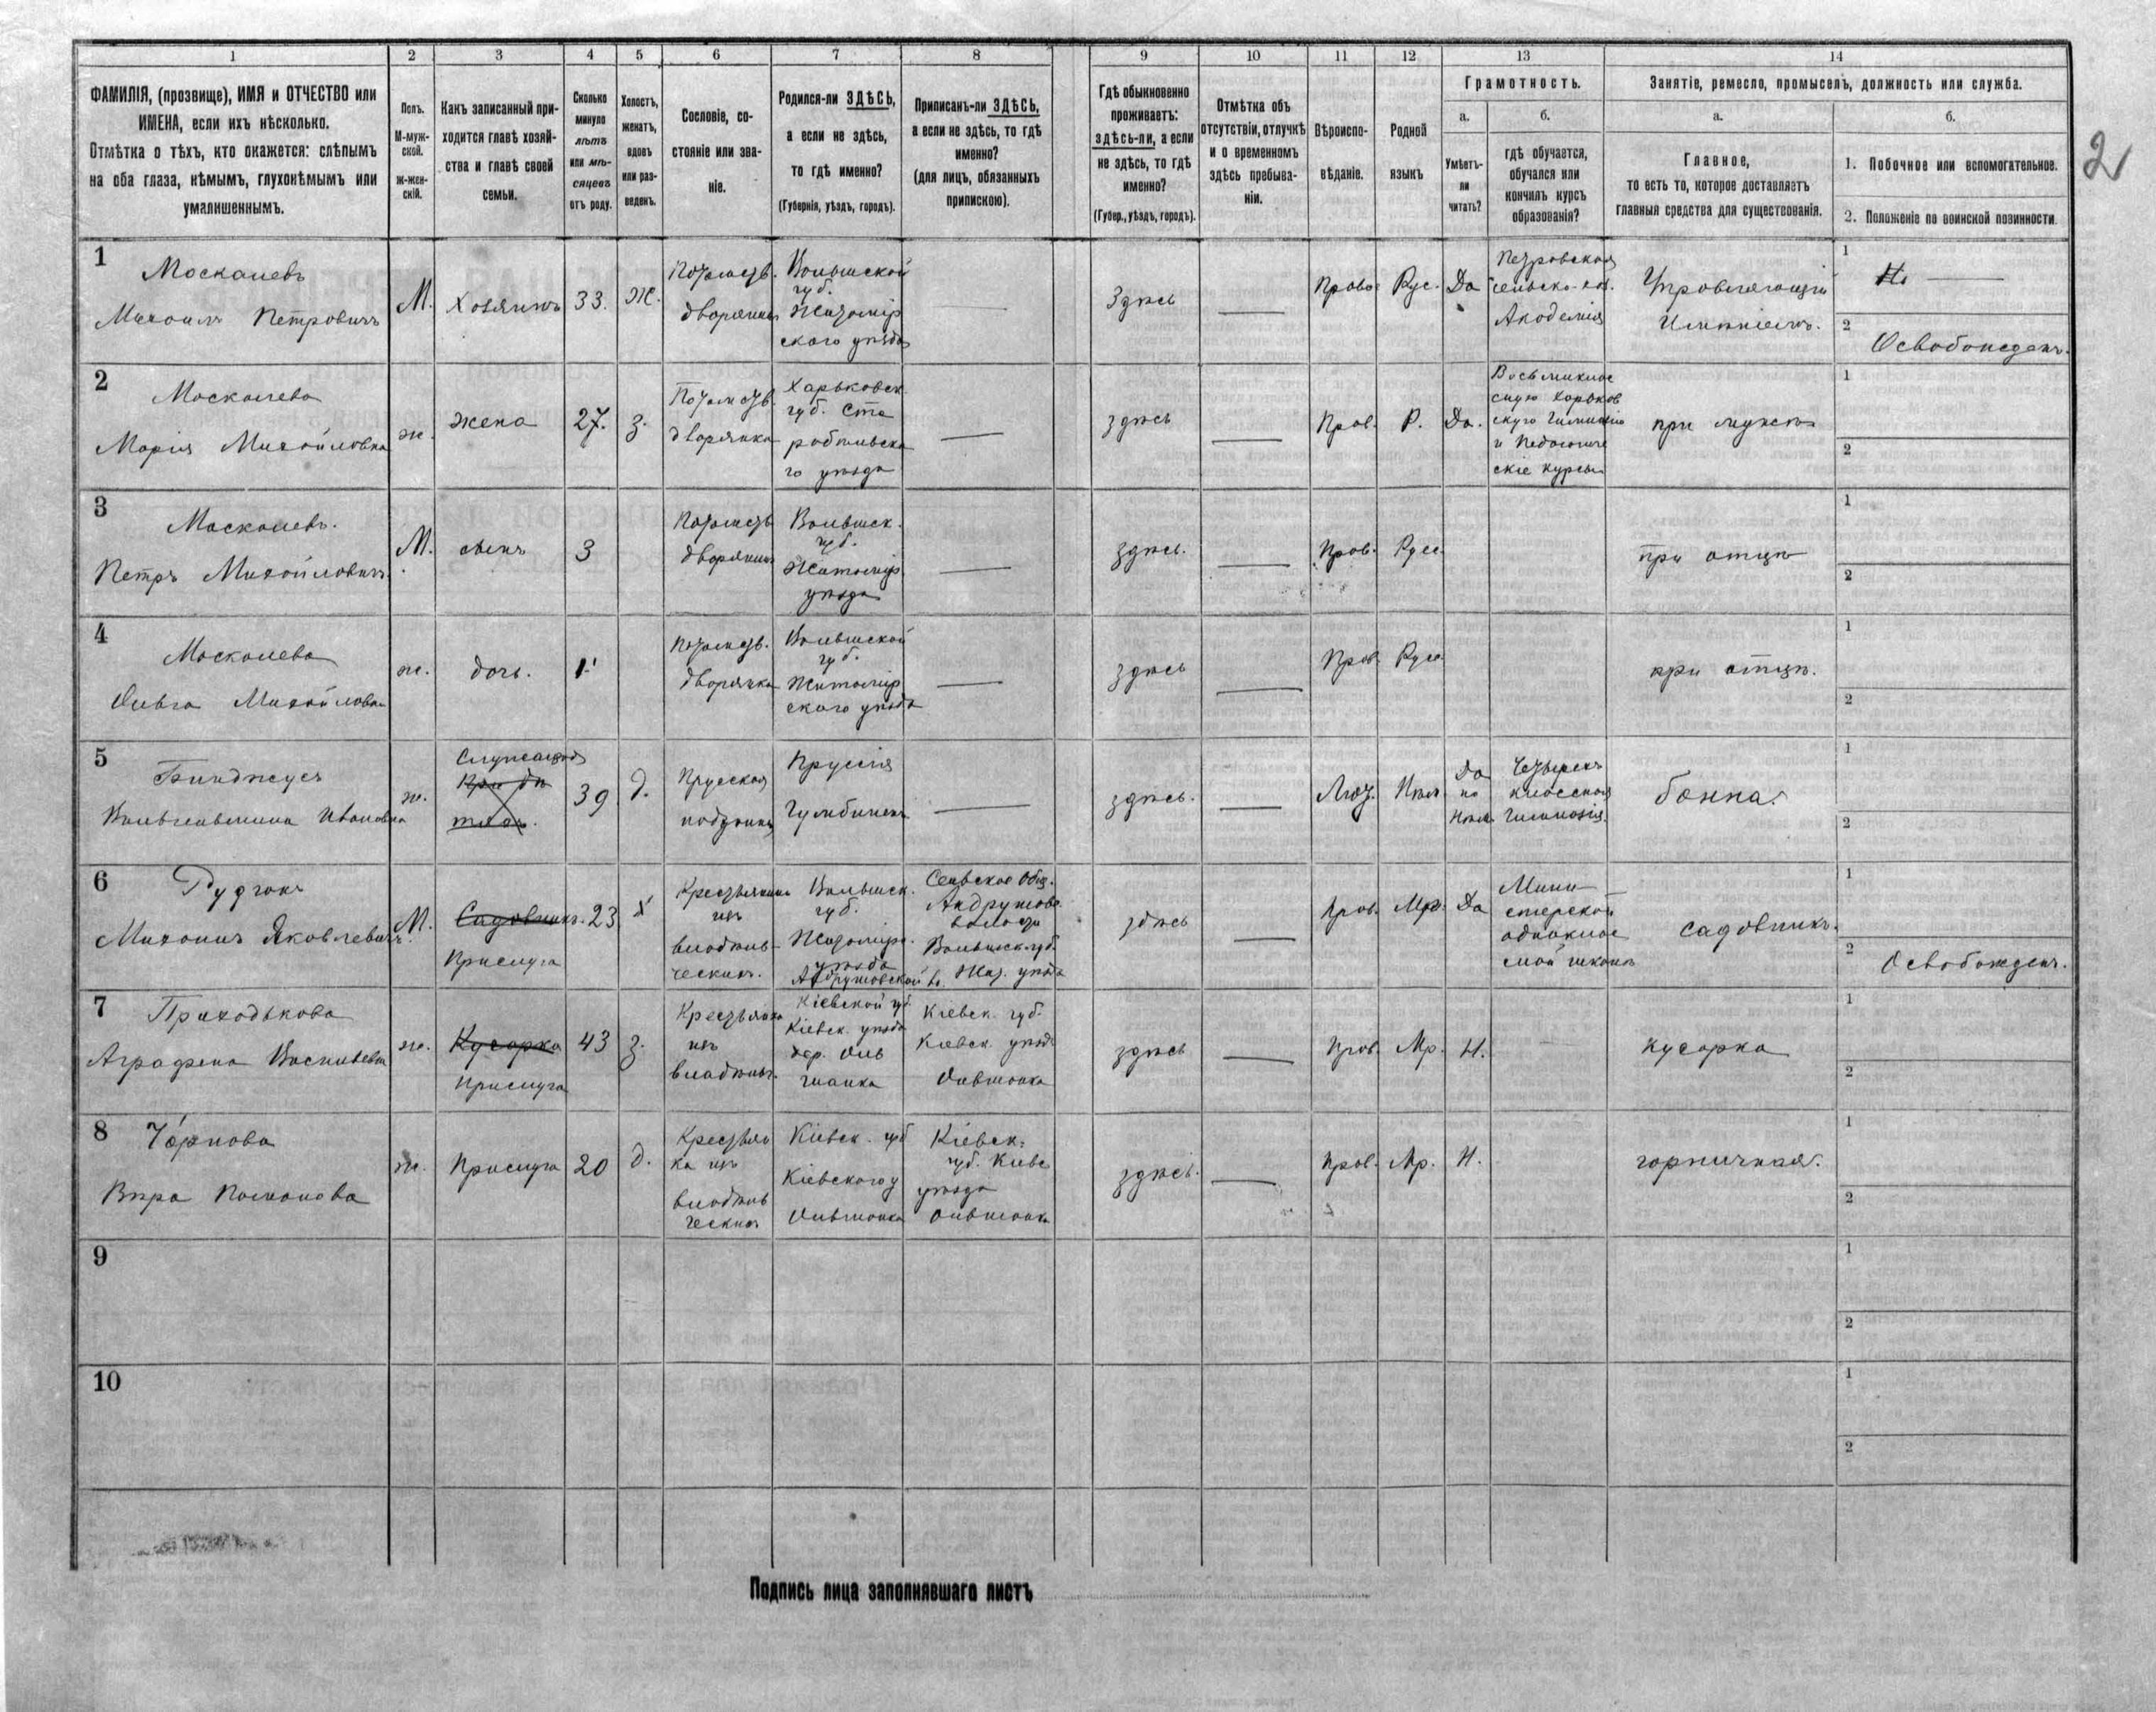 1 2 3 4 5 6 7 8 9 10 11 12 13 14
ФАМИЛІЯ, (прозвище), ИМЯ и ОТЧЕСТВО или
ИМЕНА, если ихъ нѣсколько.
Отмѣтка о тѣхъ, кто окажется: слѣпымъ
на оба глаза, нѣмымъ, глухонѣмымъ или
умалишеннымъ.
Полъ.
М-муж-
ской.
Ж-жен-
скій.
Какъ записанный при-
ходится главѣ хозяй-
ства и главѣ своей
семьи.
Сколько
минуло
лѣтъ
или мѣ-
сяцевъ
отъ роду.
Холостъ,
женатъ,
вдовъ
или раз-
веденъ.
Сословіе, со-
стояніе или зва-
ніе.
Родился-ли ЗДѢСЬ,
а если не здѣсь,
то гдѣ именно?
(Губернія, уѣздъ, городъ).
Приписанъ-ли ЗДѢСЬ,
а если не здѣсь, то гдѣ
именно?
(для лицъ, обязанныхъ
припискою).
Гдѣ обыкновенно
проживаетъ:
здѣсь-ли, а если
не здѣсь, то гдѣ
именно?
(Губер., уѣздъ, городъ).
Отмѣтка объ
отсутствіи, отлучкѣ
и о временномъ
здѣсь пребыва-
ніи.
Вѣроиспо-
вѣданіе.
Родной
языкъ
Грамотность.
а.
Умѣетъ-
ли
читать?
б.
гдѣ обучается,
обучался или
кончилъ курсъ
образованія?
Занятіе, ремесло, промыселъ, должность или служба.
а.
Главное,
то есть то, которое доставляетъ
главныя средства для существованія.
б.
1. Побочное или вспомогательное.
2. Положеніе по воинской повинности.
2
1
Москалевъ
Михаилъ Петровичъ
М.
Хозяинъ
33.
Ж.
Потомств.
дворянинъ
Волынской
губ.
Житомір
ского уѣзда
Здѣсь
Право
Рус.
Да
Петровская
сельско-хоз.
Академія
Управляющій
Имѣніемъ.
1
2
Освобожденъ.
2
Москалева
Марія Михайловна
ж.
жена
27.
З.
Потомств.
дворянка
Харьковск.
губ. Ста
робѣльска
го уѣзда
здѣсь
Прав.
Р.
Да.
Восьмиклас
сную Харьков
скую Гимназію
и Педагогиче
скіе курсы
при мужѣ
1
2
3
Москалевъ.
Петръ Михайловичъ
М.
сынъ
3
Потомств
дворянинъ
Волынск.
губ.
Житомір.
уѣзда
здѣсь.
Прав.
Русс
при отцѣ
1
2
4
Москалева
Ольга Михайловна
ж.
дочь.
1
Потомств.
дворянка
Волынской
губ.
Житомір
ского уѣзда
здѣсь
Прав.
Русс
при отцѣ.
1
2
5
Вильгельмина Ивановна
ж.
Служащая
При дѣ
тяхъ.
39
д.
Прусская
Пруссія
Гумбиненъ
здѣсь.
Лют.
Нѣм.
Да
по
Нѣм.
Четырех
классная
Гимназія.
бонна.
1
2
6
Рудюкъ
Михаилъ Яковлевичъ
М.
Садовникъ.
Прислуга
23
х
Крестьянинъ
изъ
владѣль-
ческихъ.
Волынск.
губ.
Житомірс.
уѣзда
Андрушовской в.
Сельское Общ.
Андрушовс.
волости
Волынск. губ.
Жит. уѣзда
здѣсь
Прав.
Мр.
Да
Мини-
стерской
одноклас
сной школѣ
садовникъ.
1
2
Освобожденъ.
7
Приходькова
Аграфена Васильевна
ж.
Кухарка
Прислуга
43
З.
Крестьянка
изъ
владѣльч.
Кіевской губ
Кіевск. уѣзда
дер. Оль
шанка
Кіевск. губ.
Кіевск. уѣзд.
Ольшанка
здѣсь
Прав.
Мр.
Н.
кухарка
1
2
8
Чорнова
Вѣра
ж.
Прислуга
20
д.
Крестьян
ка изъ
владѣль
ческихъ
Кіевск. губ
Кіевского у
Ольшанка
Кіевск.
губ. Кіевс
уѣзда
Ольшанка
здѣсь.
Прав.
Мр.
Н.
горничная.
1
2
9
1
2
10
1
2
Подпись лица заполнявшаго листъ